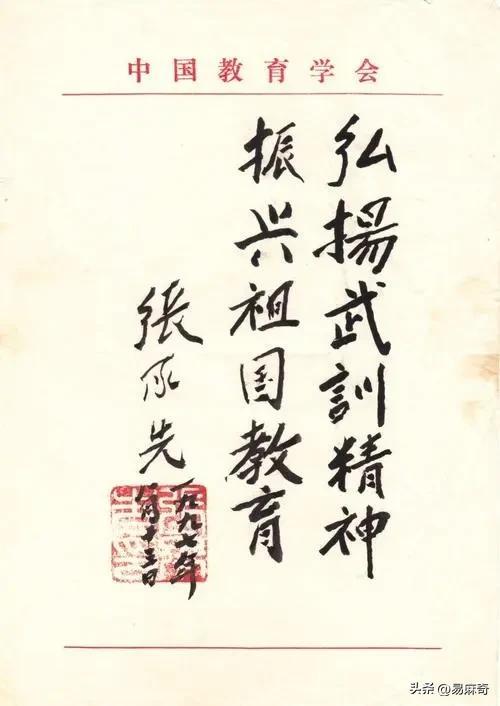 中国教育学会
弘揚武訓精神
振兴祖国教育
張承先
一九九七年
八月十三日
头条 @易麻奇